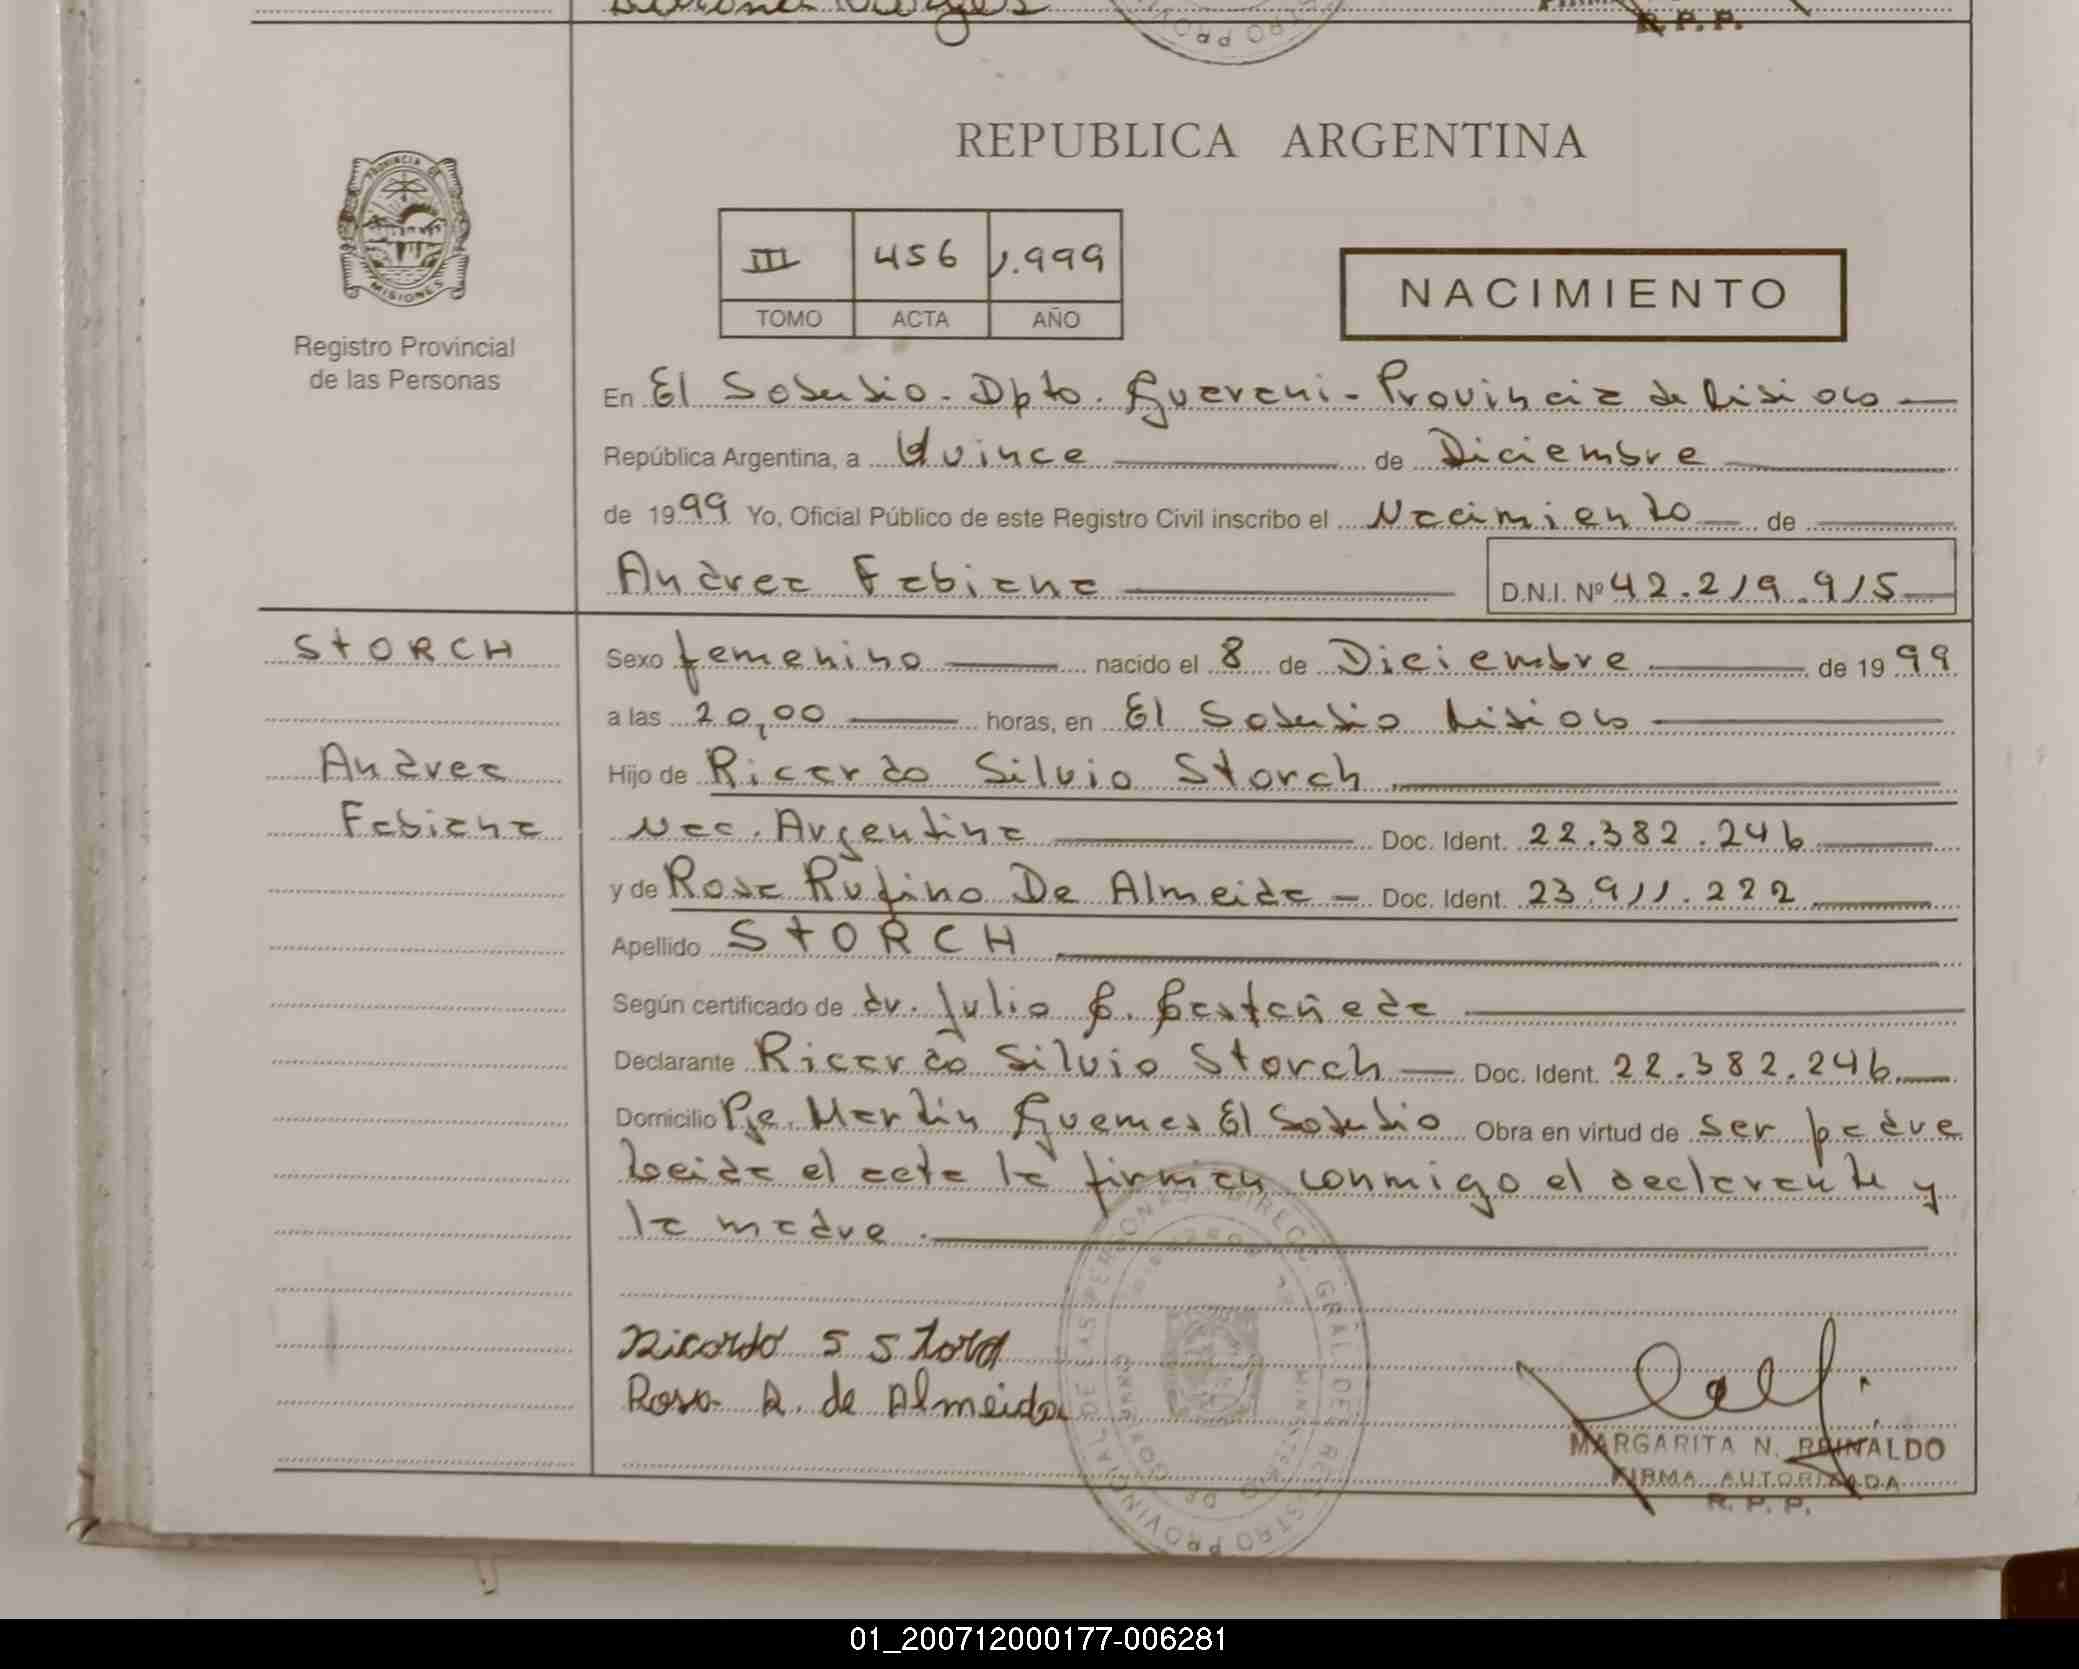 R. P. P.
REPUBLICA ARGENTINA
PROVINCIA DE MISIONES
Registro Provincial
de las Personas
III 456 1.999
TOMO ACTA AÑO
NACIMIENTO
En El Soberbio - Dpto. Guarani - Provincia de Misiones
República Argentina, a Quince de Diciembre
de 1999 Yo, Oficial Público de este Registro Civil inscribo el Nacimiento de
Andrea Fabiana D.N.I. Nº 42.219.915
STORCH
Andrea
Fabiana
Sexo femenino nacido el 8 de Diciembre de 1999
a las 20,00 horas, en El Soberbio Misiones
Hijo de Ricardo Silvio Storch
Nac. Argentina Doc. Ident. 22.382.246
y de Rosa Rufino De Almeida - Doc. Ident. 23.911.222
Apellido STORCH
Según certificado de dr. Julio C. Castañeda
Declarante Ricardo Silvio Storch Doc. Ident. 22.382.246
Domicilio Pje. Martin Guemes El Soberbio Obra en virtud de ser padre
Leida el acta la firman conmigo el declarante y
la madre.
Ricardo S Storch
Rosa R. de Almeida
MARGARITA N. REINALDO
FIRMA AUTORIZADA
R. P. P.
01_200712000177-006281